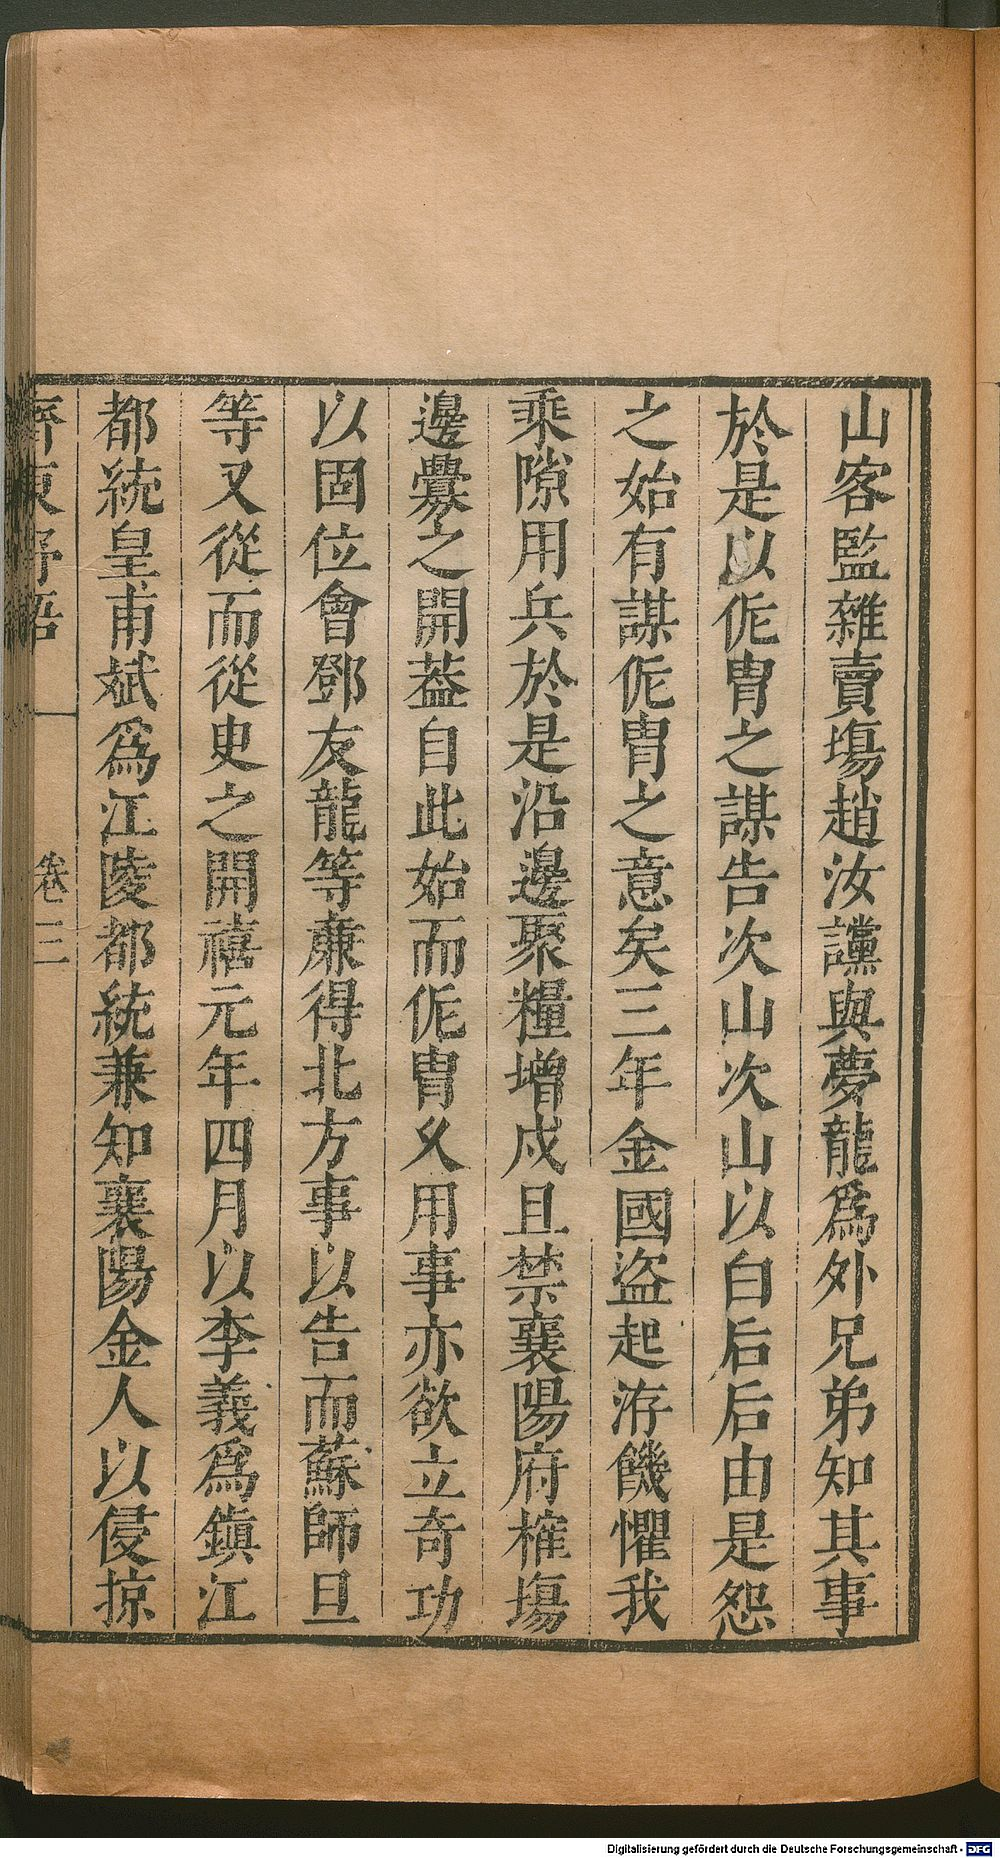 山客監雜賣塲趙汝讜與夢龍爲外兄弟知其事
於是以侂冑之謀告次山次山以白后后由是怨
之始有謀侂冑之意矣三年金國盜起洊饑懼我
乘隙用兵於是沿邊聚糧增戍且禁襄陽府榷塲
邊釁之開葢自此始而侂冑久用事亦欲立奇功
以固位會鄧友龍等亷得北方事以告而蘇師旦
等又從而從臾之開禧元年四月以李義爲鎭江
都統皇甫斌爲江陵都統兼知襄陽金人以侵掠
齊東野語 卷三
Digitalisierung gefördert durch die Deutsche Forschungsgemeinschaft - DFG